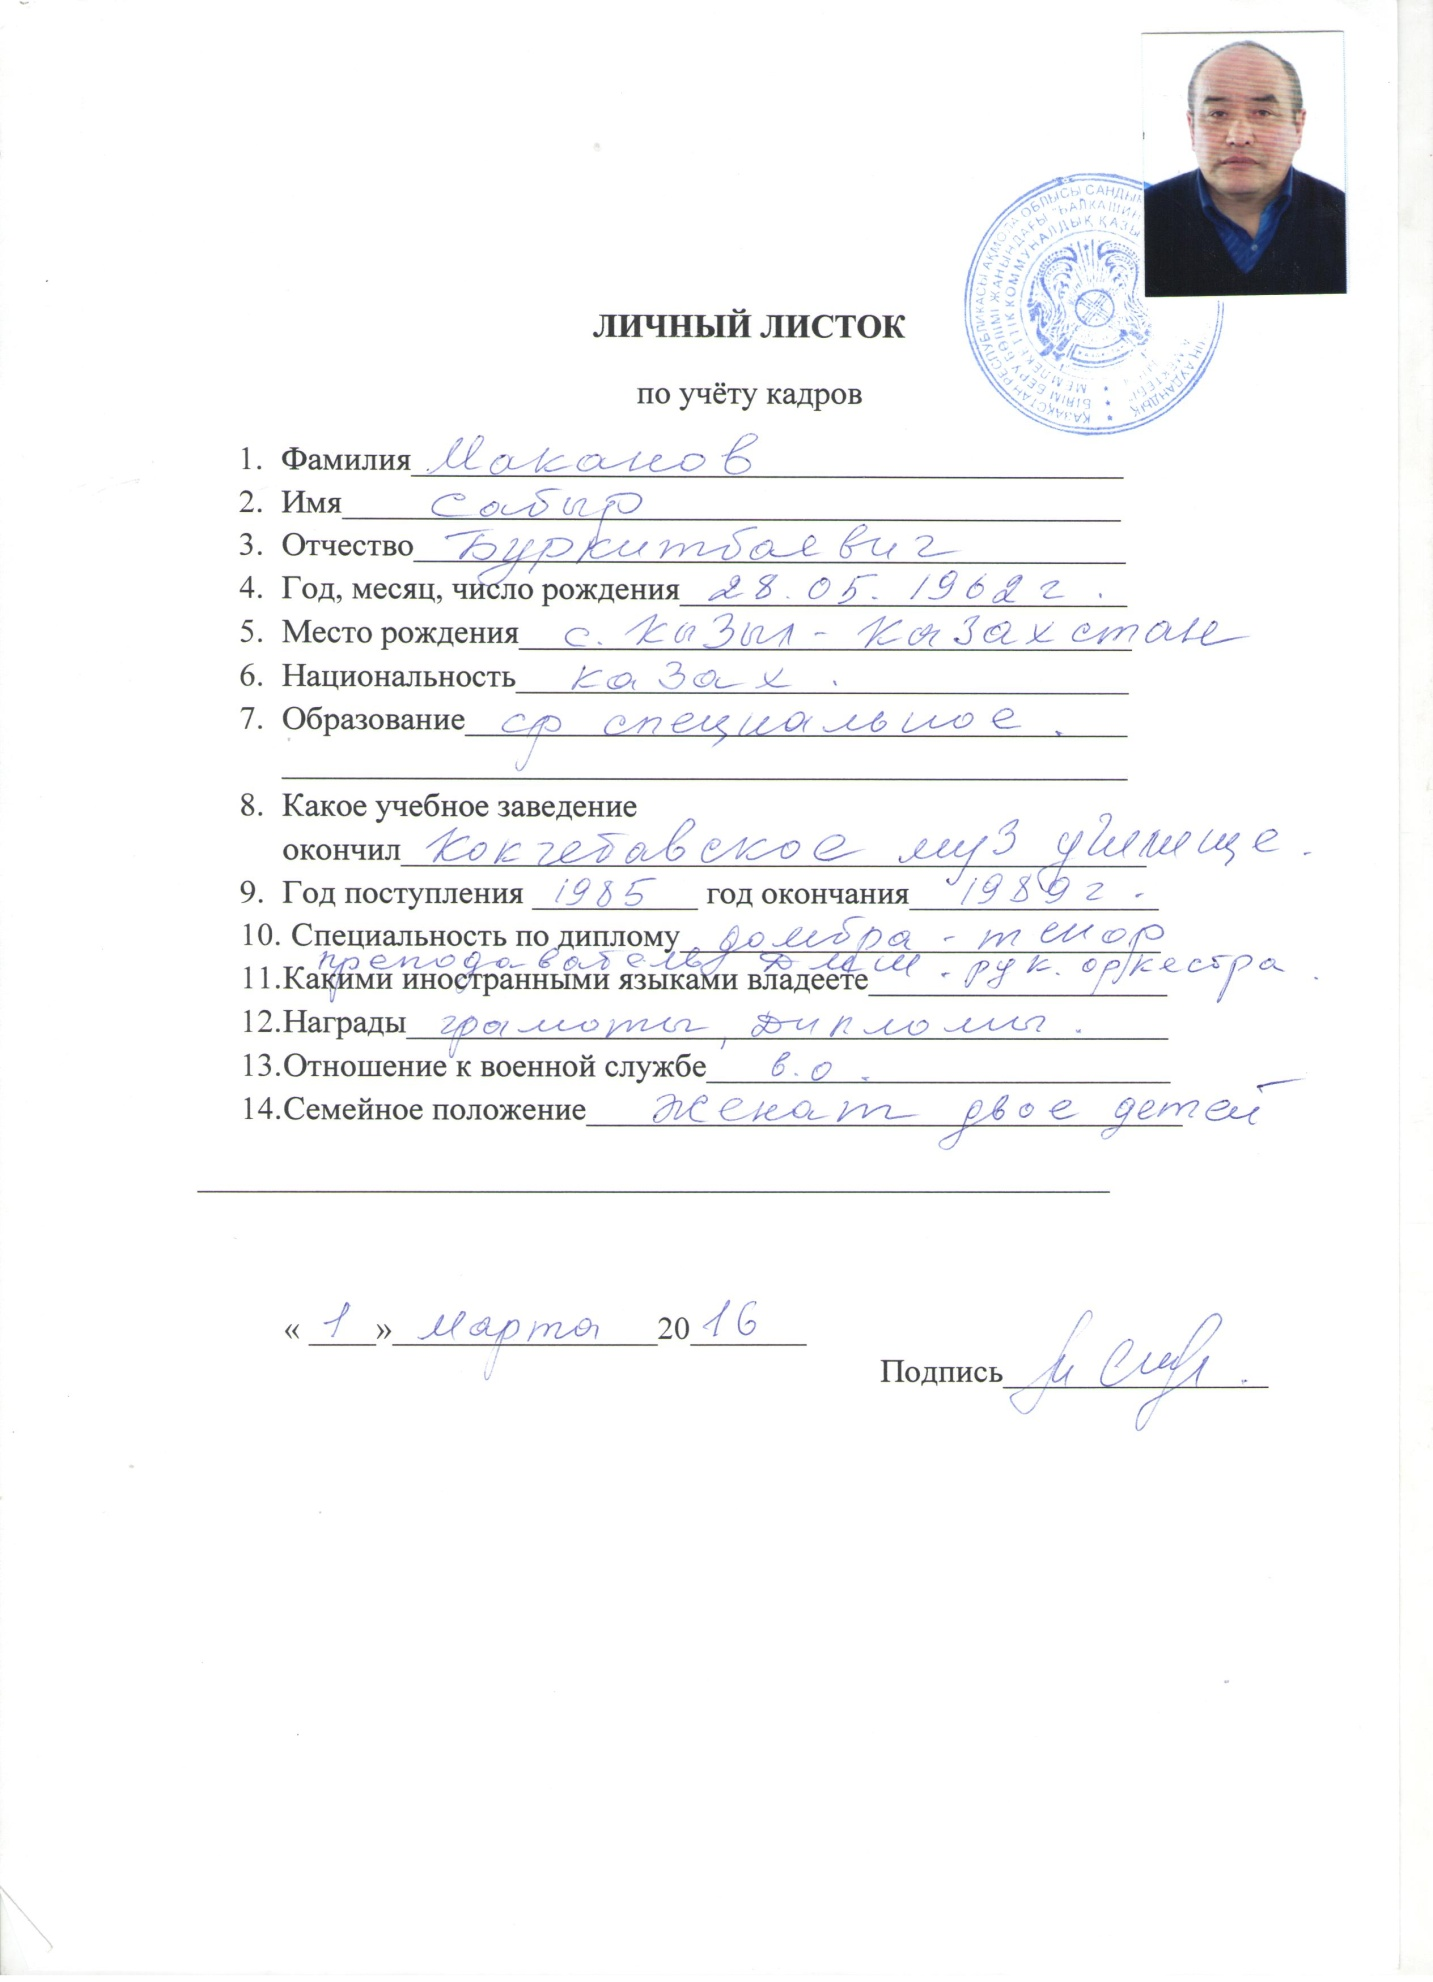 ҚАЗАҚСТАН РЕСПУБЛИКАСЫ АҚМОЛА ОБЛЫСЫ
БІЛІМ БЕРУ БӨЛІМІ ЖАНЫНДАҒЫ
МЕМЛЕКЕТТІК КОММУНАЛДЫҚ
ЛИЧНЫЙ ЛИСТОК
по учёту кадров
1. Фамилия Маканов
2. Имя Сабыр
3. Отчество Буркитбаевич
4. Год, месяц, число рождения 28.05.1962г.
5. Место рождения с. Кызыл-Казахстан
6. Национальность казах.
7. Образование ср специальное.
8. Какое учебное заведение
окончил Кокчетавское муз училище.
9. Год поступления 1985 год окончания 1989г.
10. Специальность по диплому домбра-тенор
преподаватель ДМШ. рук. оркестра.
11.Какими иностранными языками владеете
12.Награды грамоты, Дипломы.
13.Отношение к военной службе в.о.
14.Семейное положение Женат двое детей
« 1 » марта 2016
Подпись